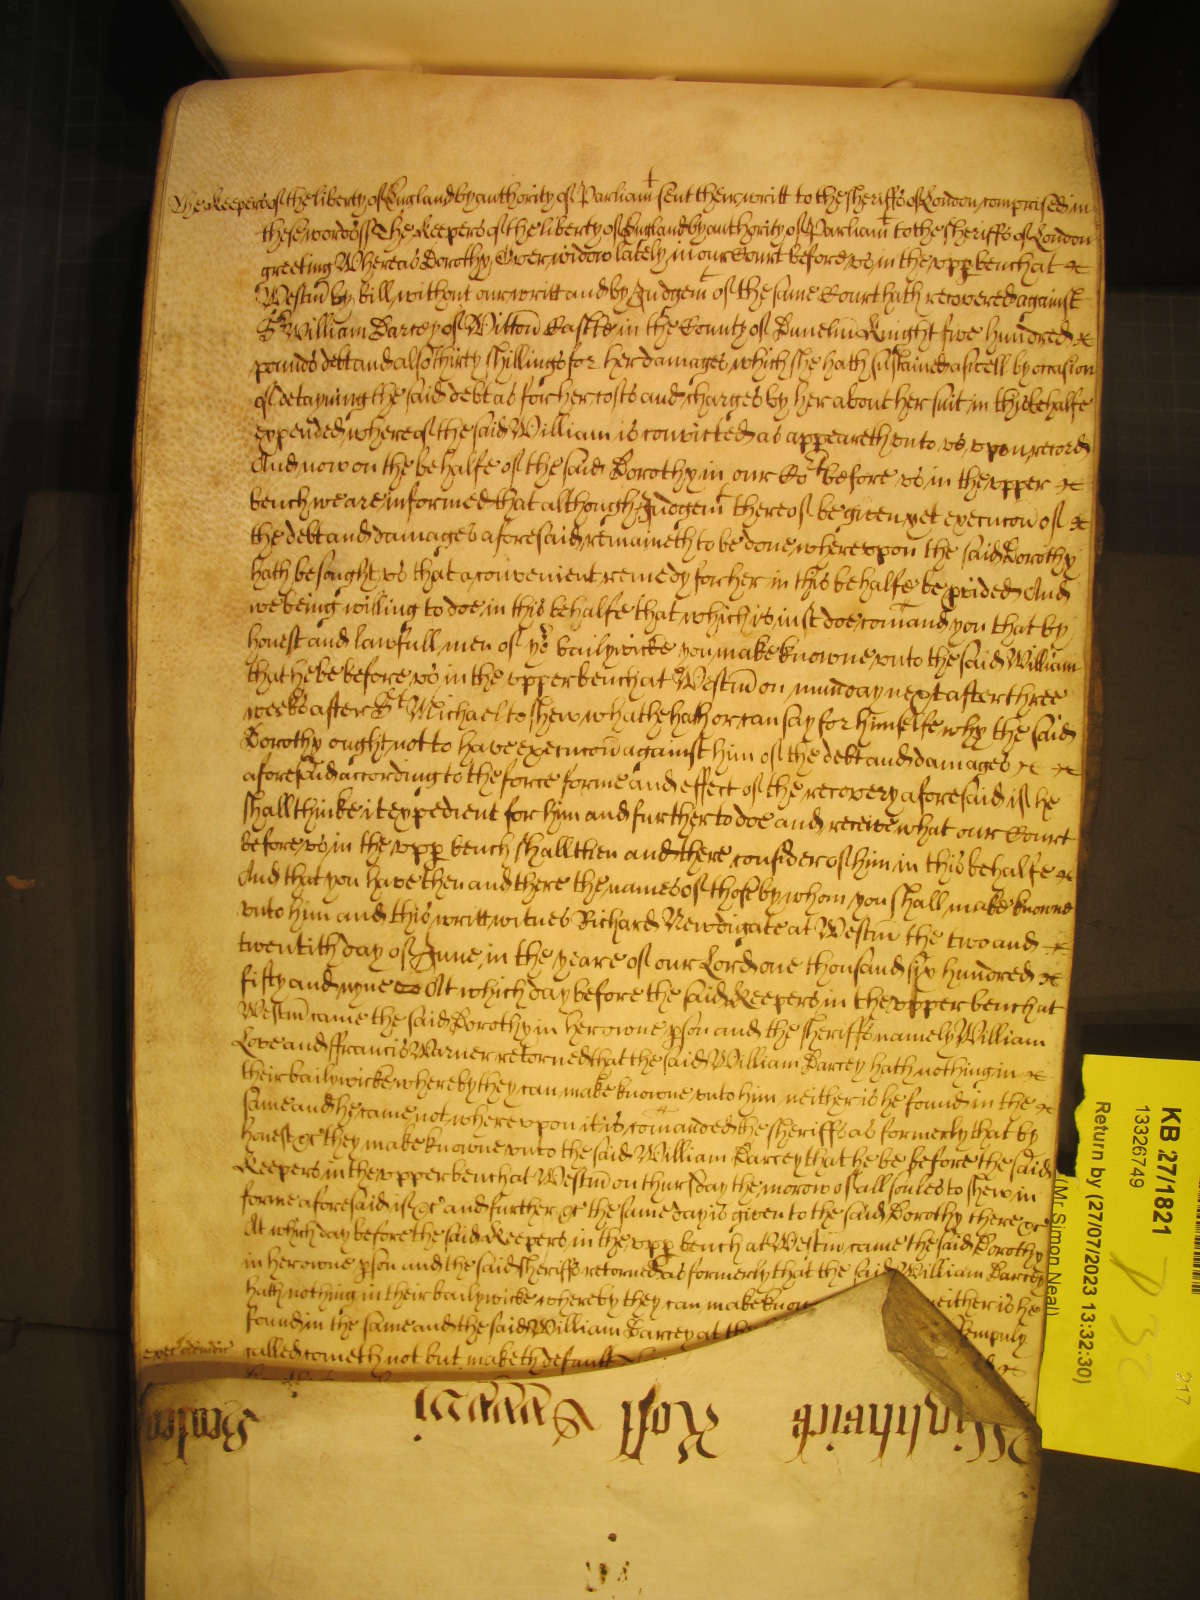 The Keepers of the liberty of England by authority of Parliamt sent their writt to the sheriffs of London comprised in
these words ss The Keepers of the liberty of England by authority of Parliamt to the sheriffs of London
greeting Whereas Dorothy widow lately in our Court before us in the upp bench at
Westm by bill without our writt and by Judgemt of the same Court hath recovered against
Sr William Darcey of Witton Castle in the County of Dunelm Knight five hundred
pounds debt and also thirty shillings for her damages which she hath sustained aswell by occasion
of detayning the said debt as for her costs and charges by her about her suit in this behalfe
expended whereof the said William is convicted as appeareth unto us upon record
And now on the behalfe of the said Dorothy in our Cort before us in the upper
bench we are informed that although Judgemt thereof be given yet execucon of
the debt and damages aforesaid remaineth to be done whereupon the said Dorothy
hath besought us that a convenient remedy for her in this behalfe be pvided And
we being willing to doe in this behalfe that which is just doe comand you that by
honest and lawfull men of yor bailywicke you make knowne unto the said William
that he be before us in the upper bench at Westm on munday next after three
weeks after St Michael to shew what he hath or can say for himselfe why the said
Dorothy ought not to have execucon against him of the debt and damages
aforesaid according to the force forme and effect of the recovery aforesaid if he
shall thinke it expedient for him and further to doe and receive what our Court
before us in the upp bench shall then and there consider of him in this behalfe
And that you have then and there the names of those by whom you shall make knowne
unto him and this writt witnes Richard Newdigate at Westm the two and
twentith day of June in the yeare of our Lord one thousand six hundred
fifty and nyne At which day before the said Keepers in the upper bench at
Westm came the said Dorothy in her owne pson and the sheriffs namely William
Love and ffrancis Warner retorned that the said William Darcey hath nothing in
their bailywicke whereby they can make knowne unto him neither is he found in the
same and he came not whereupon it is comanded the sheriffs as formerly that by
honest &c they make knowne unto the said William Darcey that he be before the said
Keepers in the upper bench at Westm on thursday the morow of all soules to shew in
forme aforesaid if &c and further &c the same day is given to the said Dorothy there &c
At which day before the said Keepers in the upp bench at Westm came the said Dorothy
in her owne pson and the said sheriffs retorned as formerly that the said William Darcey
hath nothing in their bailywicke whereby they can make know neither is he
found in the same and the said William Darcey at the
called cometh not but maketh default
Roll
KB 27/1821
13326749
Return by (27/07/2023 13:32:30)
(Mr Simon Neal)
217